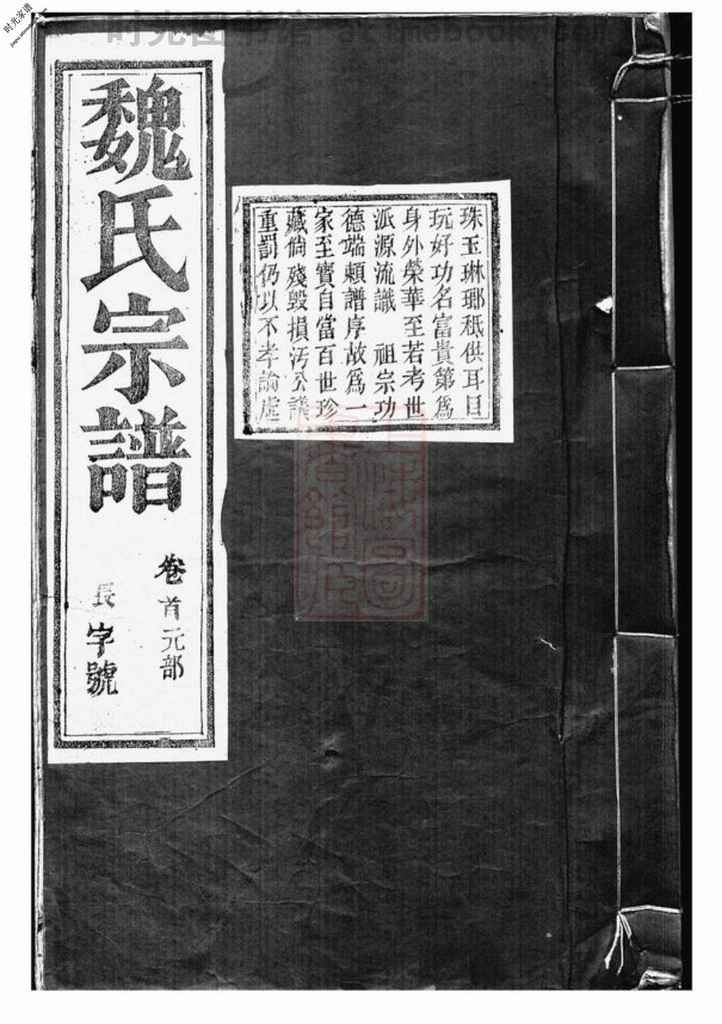 魏氏宗譜
卷首元部
長字號
珠玉琳瑯秖供耳目
玩好功名富貴第爲
身外榮華至若考世
派源流識 祖宗功
德端頼譜序故爲一
家至寶自當百世珍
藏倘殘毀損汚公議
重罰仍以不孝論處
时光家谱